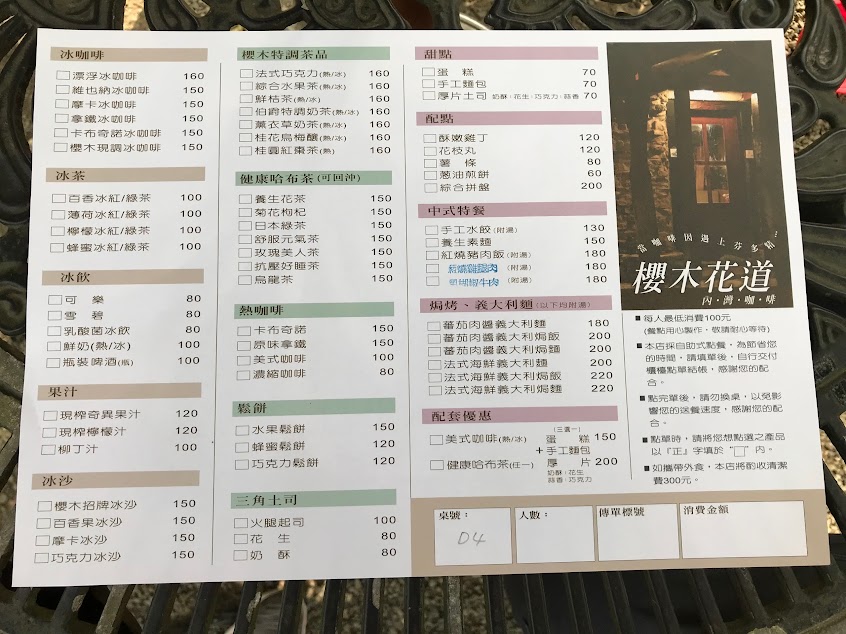 冰咖啡
漂浮冰咖啡 160
維也納冰咖啡 150
摩卡冰咖啡 150
拿鐵冰咖啡 150
卡布奇諾冰咖啡 150
櫻木現調冰咖啡 150
冰茶
百香冰紅/綠茶 100
薄荷冰紅/綠茶 100
檸檬冰紅/綠茶 100
蜂蜜冰紅/綠茶 100
冰飲
可樂 80
雪碧 80
乳酸菌冰飲 80
鮮奶(熱/冰) 100
瓶裝啤酒(瓶) 100
果汁
現榨奇異果汁 120
現榨檸檬汁 120
柳丁汁 100
冰沙
櫻木招牌冰沙 150
百香果冰沙 150
摩卡冰沙 150
巧克力冰沙 150
櫻木特調茶品
法式巧克力(熱/冰) 160
綜合水果茶(熱/冰) 160
鮮桔茶(熱/冰) 160
伯爵特調奶茶(熱/冰) 160
薰衣草奶茶(熱/冰) 160
桂花烏梅釀(熱/冰) 160
桂圓紅棗茶(熱) 160
健康哈布茶(可回沖)
養生花茶 150
菊花枸杞 150
日本綠茶 150
舒服元氣茶 150
玫瑰美人茶 150
抗壓好睡茶 150
烏龍茶 150
熱咖啡
卡布奇諾 150
原味拿鐵 150
美式咖啡 100
濃縮咖啡 80
鬆餅
水果鬆餅 150
蜂蜜鬆餅 120
巧克力鬆餅 120
三角土司
火腿起司 100
花生 80
奶酥 80
甜點
蛋糕 70
手工麵包 70
厚片土司 奶酥·花生·巧克力·蒜香 70
配點
酥嫩雞丁 120
花枝丸 120
薯條 80
蔥油煎餅 60
綜合拼盤 200
中式特餐
手工水餃(附湯) 130
養生素麵 150
紅燒豬肉飯(附湯) 180
(附湯) 180
(附湯) 180
焗烤、義大利麵(以下均附湯)
蕃茄肉醬義大利麵 180
蕃茄肉醬義大利焗飯 200
蕃茄肉醬義大利焗麵 200
法式海鮮義大利麵 200
法式海鮮義大利焗飯 220
法式海鮮義大利焗麵 220
配套優惠
(三選一)
美式咖啡(熱/冰) 蛋糕 150
+手工麵包
健康哈布茶(任一) 厚片 200
奶酥·花生
蒜香·巧克力
當咖啡因遇上芬多精
櫻木花道
內·灣·咖·啡
■每人最低消費100元
(餐點用心製作,敬請耐心等待)
■本店採自助式點餐,為節省您
的時間,請填單後,自行交付
櫃檯點單結帳,感謝您的配
合。
■點完單後,請勿換桌,以免影
響您的送餐速度,感謝您的配
合。
■點單時,請將您想點選之產品
以『正』字填於"□"內。
■如攜帶外食,本店將酌收清潔
費300元。
桌號:
D4
人數:
傳單標號
消費金額